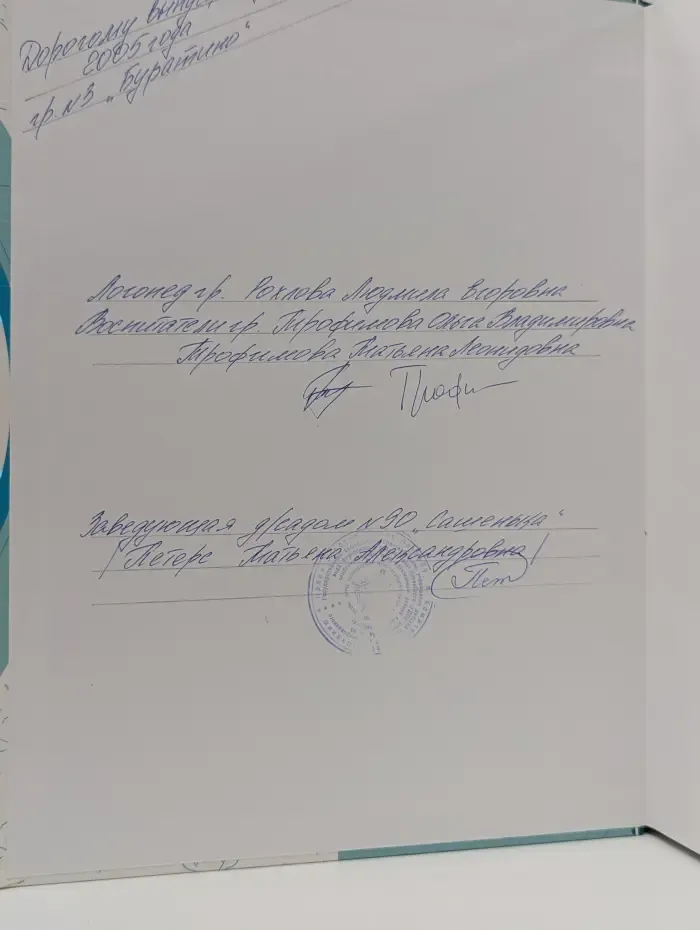 Дорогому
2005 года
гр. №3 „Буратино"
Логопед гр. Рохлова Людмила Егоровна
Воспитатели гр. Трофимова Ольга Владимировна
Трофимова Татьяна Леонидовна
Заведующая д/садом №90 „Сашенька"
/Петерс Татьяна Александровна/